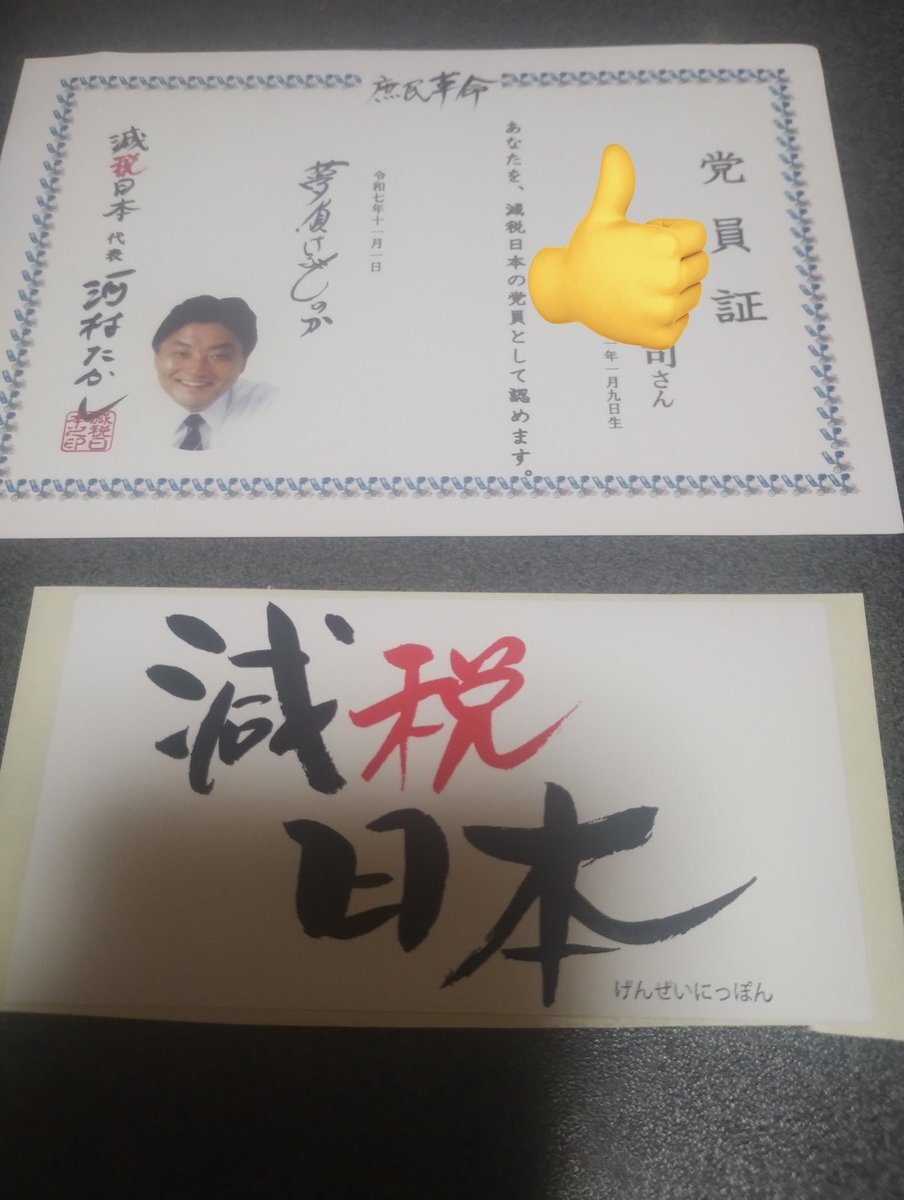 庶民革命
党員証
司さん
年一月九日生
あなたを、減税日本の党員として認めます。
令和七年十一月一日
減税日本 代表 河村たかし
減税日本之印
減税
日本
げんぜいにっぽん